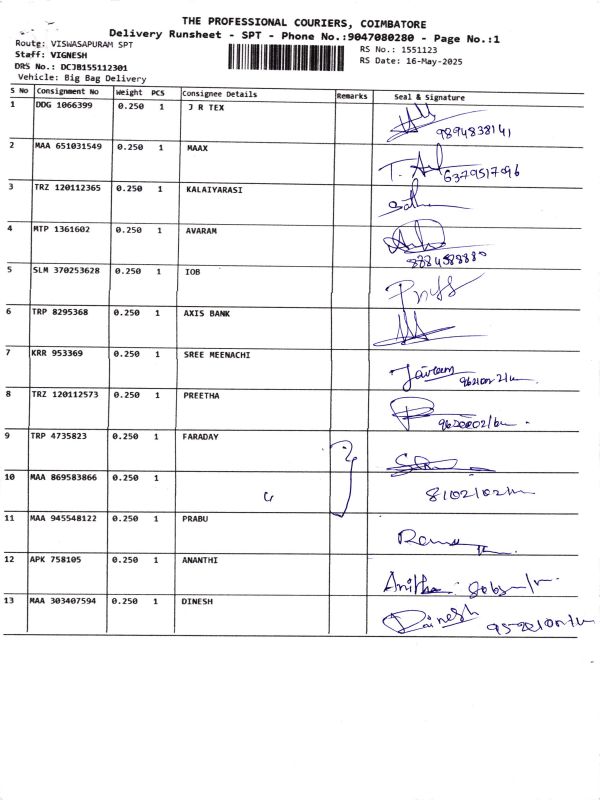 THE PROFESSIONAL COURIERS, COIMBATORE
Delivery Runsheet - SPT - Phone No.:9047080280 - Page No.:1
Route: VISWASAPURAM SPT
RS No.: 1551123
Staff: VIGNESH
RS Date: 16-May-2025
DRS No.: DCJB155112301
Vehicle: Big Bag Delivery
S No Consignment No Weight PCS Consignee Details Remarks Seal & Signature
1 DDG 1066399 0.250 1 J R TEX
9894838141
2 MAA 651031549 0.250 1 MAAX
6379517096
3 TRZ 120112365 0.250 1 KALAIYARASI
4 MTP 1361602 0.250 1 AVARAM
5 SLM 370253628 0.250 1 IOB
6 TRP 8295368 0.250 1 AXIS BANK
7 KRR 953369 0.250 1 SREE MEENACHI
8 TRZ 120112573 0.250 1 PREETHA
9 TRP 4735823 0.250 1 FARADAY
10 MAA 869583866 0.250 1
11 MAA 945548122 0.250 1 PRABU
12 APK 758105 0.250 1 ANANTHI
13 MAA 303407594 0.250 1 DINESH
Dainesh